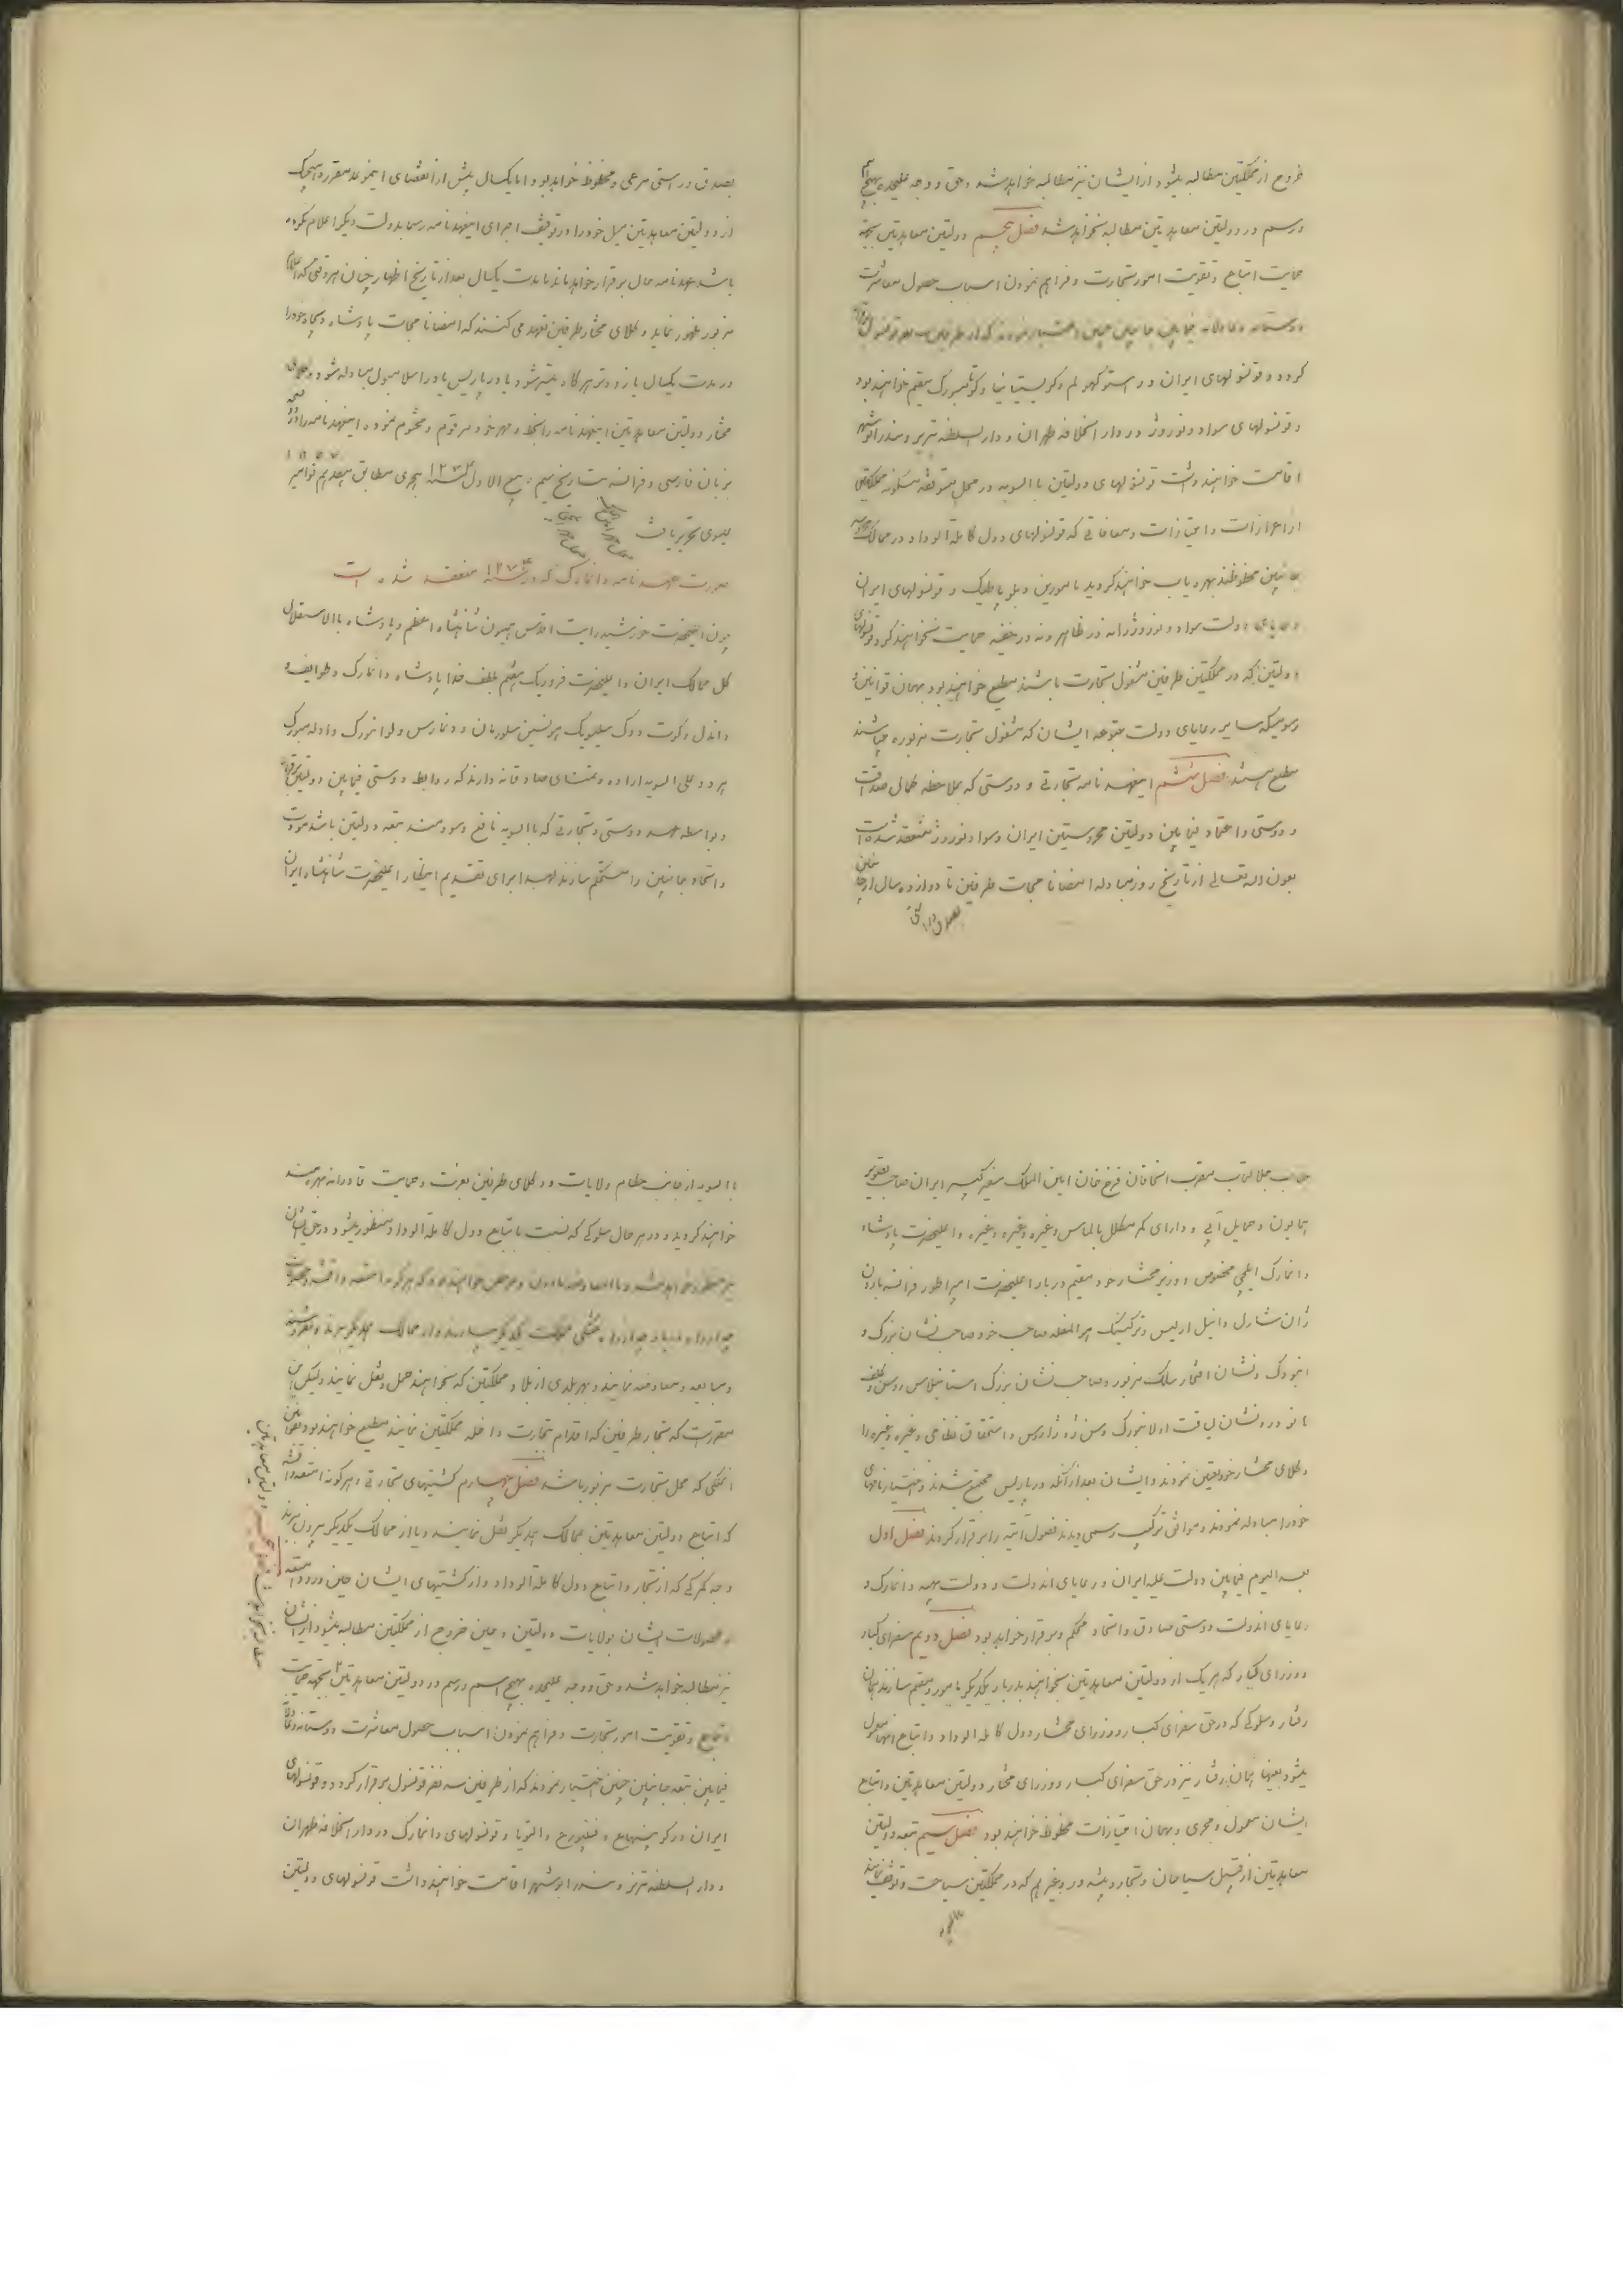 خروج از مملکتین مطالبه میشود از ایشان نیز مطالبه خواهد شد و حق و وجه علیحده بهیچ اسم
و رسم در دولتین معاهدتین مطالبه نخواهد شد فصل پنجم دولتین معاهدتین بجهة
حمایت اتباع و تقویت امور تجارت و فراهم نمودن اسباب حصول معاشرت
دوستانه و عادلانه فیمابین جانبین چنین اختیار نمودند که از طرفین سه نفر قونسول برقرار
کردد و قونسولهای ایران در استوکهولم و کریستیانیا و کوتمبورک مقیم خواهند بود
و قونسولهای سواد و نوروژ در دار الخلافه طهران و دار السلطنه تبریز و بندر ابوشهر
اقامت خواهند داشت قونسولهای دولتین بالسویه در محل متوقفه مسکونه مملکتین
از اعزازات و امتیازات و معافاتی که قونسولهای دول کاملة الوداد در ممالک
جانبین محظوظند بهره یاب خواهند کردید مامورین دیپلوماطیک و قونسولهای ایران
دولت سواد و نوروژ را نه در ظاهر و نه در خفیه حمایت نخواهند کرد و قونسولهای
دولتین که در مملکتین طرفین مشغول تجارت باشند مطیع خواهند بود بهمان قوانین و
رسومیکه سایر رعایای دولت متبوعه ایشان که مشغول تجارت مزبوره میباشند
مطیع هستند فصل ششم اینعهدنامه تجارتی و دوستی که بملاحظه کمال صداقت
و دوستی و اعتماد فیمابین دولتین محروستین ایران و سواد و نوروژ منعقد شده است
بعون الله تعالی از تاریخ روز مبادله امضانامجات طرفین تا دوازده سال از جانبین
بصدق و راستی
بصدق و راستی مرعی و محظوظ خواهد بود اما یکسال پیش از انقضای اینموعد مقرره هیچیک
از دولتین معاهدتین میل خود را در توقیف اجرای اینعهدنامه رسما بدولت دیکر اعلام نکرده
باشد عهدنامه بحال برقرار خواهد ماند تا مدت یکسال بعد از تاریخ اظهار چنان هر وقتی که اعلام
مزبور ظهور نماید وکلای مختار طرفین تعهد می کنند که امضانامجات پادشاه و متبوع خود را
در مدت یکسال یا زودتر هر کاه میسر شود یا در پاریس یا در اسلامبول مبادله شود وکلای
مختار دولتین معاهدتین اینعهدنامه را بخط و مهر خود مرقوم و مختوم نموده اینعهدنامه را در دو نسخه
بزبان فارسی و فرانسه بتاریخ سیم ربیع الاول سنه ۱۲۷۴ هجری مطابق هفدهم نوامبر ۱۸۵۷
عیسوی تحریر یافت
صورت عهدنامه دانمارک که در سنه ۱۲۷۴ منعقد شده است
چون اعلیحضرت خورشید رایت اقدس همیون شاهنشاه اعظم و پادشاه بالاستقلال
کل ممالک ایران و اعلیحضرت فرودریک هفتم بلطف خدا پادشاه دانمارک و طوایف
واندل و کوت و دوک سلیویک هولستین ستورمان و دیتمارس و لوانبورک و اولدمبورک
هر دو علی السویه اراده و تمنای صادقانه دارند که روابط دوستی فیمابین دولتین برقرار
و بواسطه عهد دوستی و تجارتی که بالسویه نافع و سودمند بتبعه دولتین باشد مودت
و اتحاد جانبین را مستحکم سازند لهذا برای تقدیم اینکار اعلیحضرت شاهنشاه ایران
جناب جلالتمآب مقرب الخاقان فرخ خان امین الملک سفیر کبیر ایران صاحب تصویر
همایون و حمایل آبی و دارای کمر مکلل بالماس و غیره و غیره و غیره و اعلیحضرت پادشاه
دانمارک ایلچی مخصوص و وزیر مختار خود مقیم دربار اعلیحضرت امپراطور فرانسه بارون
ژان شارل دانیل
و نشان افتخار
وکلای مختار خود تعیین نمودند و ایشان بعد از آنکه در پاریس مجتمع شدند و اختیارنامهای
خود را مبادله نمودند و موافق ترکیب رسمی دیدند فصول آتیه را برقرار کردند فصل اول
بعد الیوم فیمابین دولت علیه ایران و رعایای اندولت و دولت بهیه دانمارک و
رعایای اندولت دوستی صادق و اتحاد محکم و برقرار خواهد بود فصل دویم سفرای کبار
و وزرای کبار که هر یک از دولتین معاهدتین بخواهند بدربار یکدیکر مامور و مقیم سازند همان
رفتار و سلوکی که در حق سفرای کبار و وزرای مختار دول کاملة الوداد و اتباع آنها معمول
میشود بعینها همان رفتار نیز در حق سفرای کبار و وزرای مختار دولتین معاهدتین و اتباع
ایشان معمول و مجری و بهمان امتیازات محظوظ خواهند بود فصل سیم تبعه دولتین
معاهدتین از قبیل سیاحان و تجار و پیشه ور و غیرهم که در مملکتین سیاحت و توقف نمایند
بالسویه
بالسویه از جانب حکام ولایات و وکلای طرفین بعزت و حمایت قادرانه بهره مند
خواهند کردید و در هر حال سلوکی که نسبت باتباع دول کاملة الوداد منظور میشود در حق ایشان
نیز منظور خواهد شد و بالمعاوضه ماذون و مرخص خواهند بود که هر کونه امتعه و اقمشه و محصولات
و مبایعه و معاوضه نمایند و بهر بلدی از بلاد مملکتین که بخواهند حمل و نقل نمایند ولیکن
مقرر است که تجار طرفین که اقدام بتجارت داخله مملکتین نمایند مطیع خواهند بود بقوانین
انملکی که محل تجارت مزبور باشد فصل چهارم کشتیهای تجارتی و هر کونه امتعه و اقمشه
که اتباع دولتین معاهدتین بممالک همدیکر نقل نمایند و یا از ممالک یکدیکر بیرون برند
وجه کمرکی که از تجار و اتباع دول کاملة الوداد و از کشتیهای ایشان حین ورود امتعه
و محصولات ایشان بولایات دولتین و حین خروج از مملکتین مطالبه میشود از ایشان
نیز مطالبه خواهد شد و حق و وجه علیحده بهیچ اسم و رسم در دولتین معاهدتین بجهة حمایت
اتباع و تقویت امور تجارت و فراهم نمودن اسباب حصول معاشرت دوستانه و عادلانه
فیمابین تبعه جانبین چنین اختیار نمودند که از طرفین سه نفر قونسول برقرار کردد و قونسولهای
ایران در کوپنهاغ و والتونا و قونسولهای دانمارک در دار الخلافه طهران
و دار السلطنه تبریز و بندر ابوشهر اقامت خواهند داشت قونسولهای دولتین
مطالبه نخواهد شد فصل پنجم دولتین معاهدتین